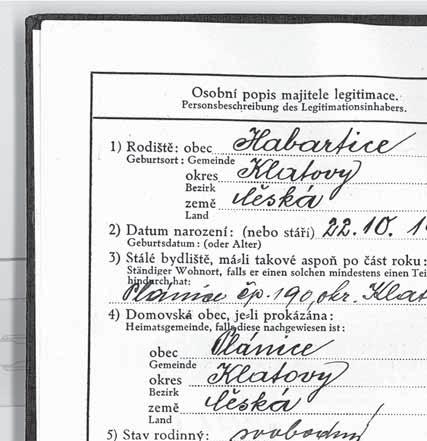 Osobní popis majitele legitimace.
Personsbeschreibung des Legitimationsinhabers.
1) Rodiště: obec Habartice
Geburtsort: Gemeinde
okres Klatovy
Bezirk
země česká
Land
2) Datum narození: (nebo stáří) 22.10.1
Geburtsdatum: (oder Alter)
3) Stálé bydliště, má-li takové aspoň po část roku:
Ständiger Wohnort, falls er einen solchen mindestens einen Tei
hindurch hat:
Plánice čp. 190, okr. Klat
4) Domovská obec, je-li prokázána:
Heimatsgemeinde, falls diese nachgewiesen ist:
obec Plánice
Gemeinde
okres Klatovy
Bezirk
země česká
Land
5) Stav rodinný: svobodný